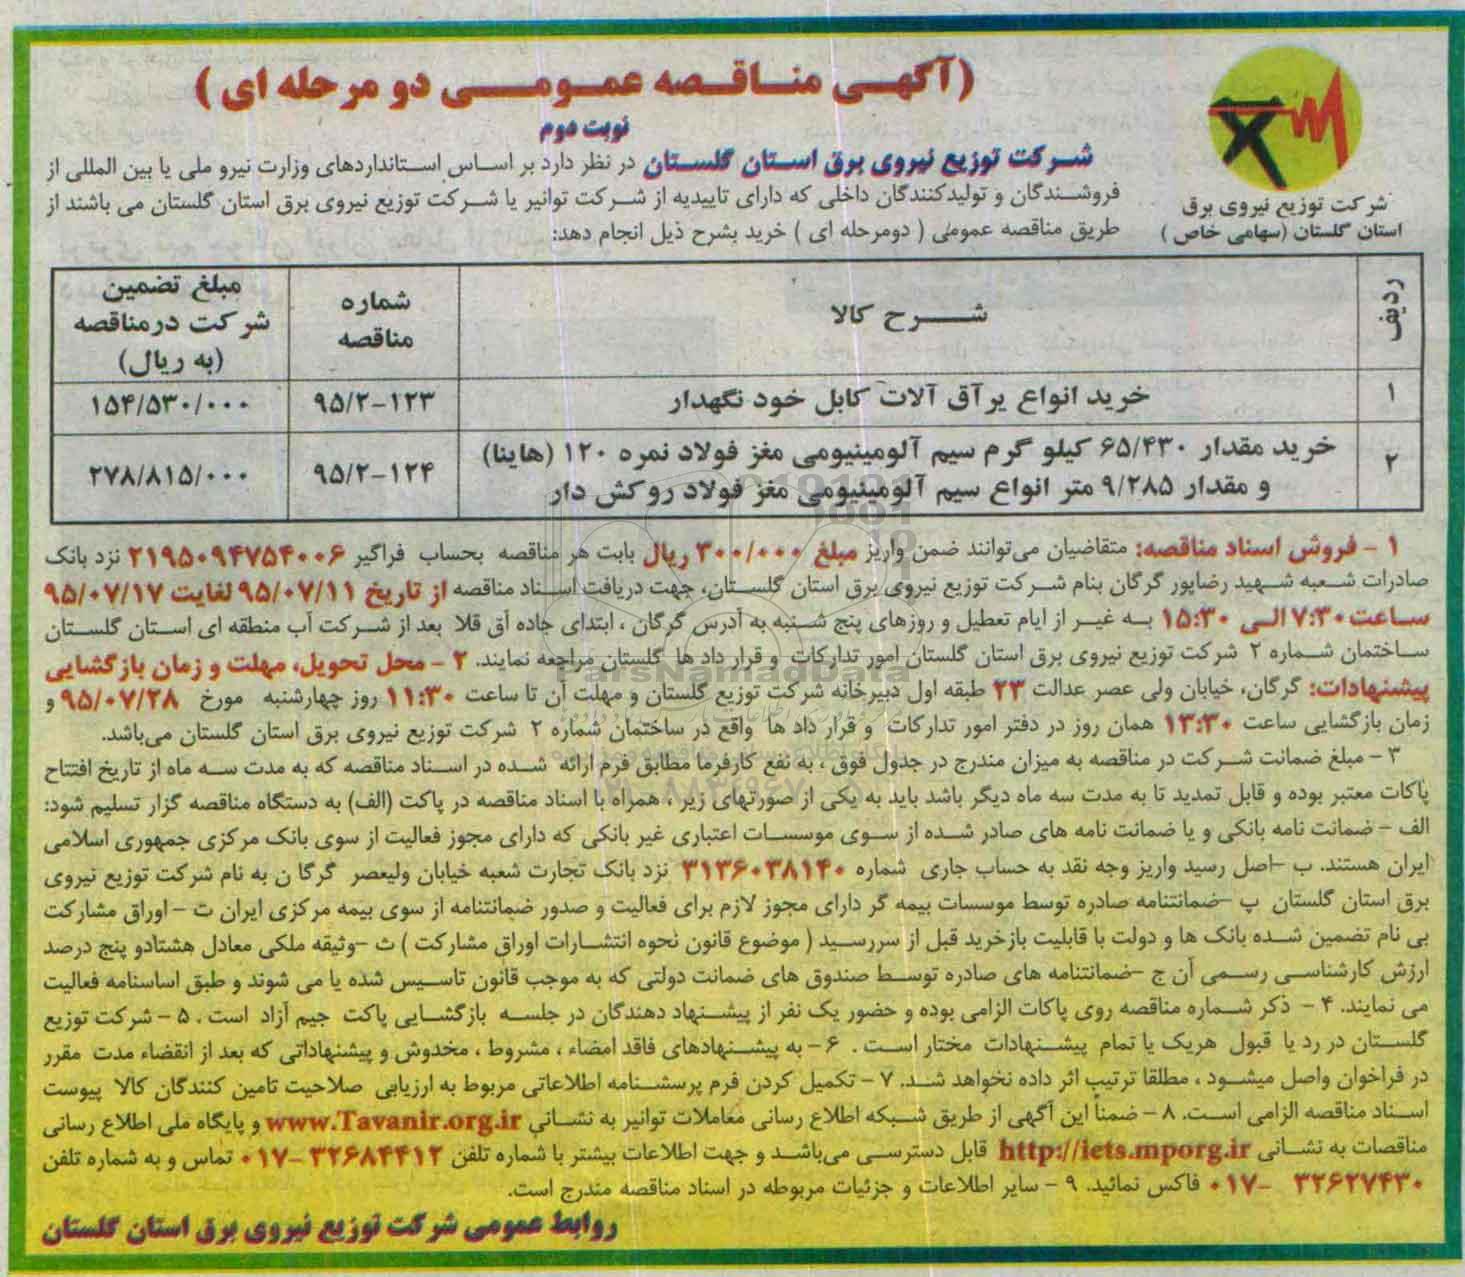 (آگهی مناقصه عمومی دو مرحله ای)
نوبت دوم
شرکت توزیع نیروی برق
استان گلستان (سهامی خاص)
شرکت توزیع نیروی برق استان گلستان در نظر دارد بر اساس استانداردهای وزارت نیرو ملی یا بین المللی از
فروشندگان و تولیدکنندگان داخلی که دارای تاییدیه از شرکت توانیر یا شرکت توزیع نیروی برق استان گلستان می باشند از
طریق مناقصه عمومی ( دومرحله ای ) خرید بشرح ذیل انجام دهد:
ردیف شرح کالا شماره مناقصه مبلغ تضمین شرکت درمناقصه (به ریال)
۱ خرید انواع یرآق آلات کابل خود نگهدار ۹۵/۲-۱۲۳ ۱۵۴/۵۳۰/۰۰۰
۲ خرید مقدار ۶۵/۴۳۰ کیلو گرم سیم آلومینیومی مغز فولاد نمره ۱۲۰ (هاینا)
و مقدار ۹/۲۸۵ متر انواع سیم آلومینیومی مغز فولاد روکش دار ۹۵/۲-۱۲۴ ۲۷۸/۸۱۵/۰۰۰
۱ - فروش اسناد مناقصه: متقاضیان می‌توانند ضمن واریز مبلغ ۳۰۰/۰۰۰ ریال بابت هر مناقصه بحساب فراگیر ۲۱۹۵۰۹۴۷۵۴۰۰۶ نزد بانک
صادرات شعبه شهید رضاپور گرگان بنام شرکت توزیع نیروی برق استان گلستان، جهت دریافت اسناد مناقصه از تاریخ ۹۵/۰۷/۱۱ لغایت ۹۵/۰۷/۱۷
ساعت ۷:۳۰ الی ۱۵:۳۰ به غیر از ایام تعطیل و روزهای پنج شنبه به آدرس گرگان ، ابتدای جاده آق قلا بعد از شرکت آب منطقه ای استان گلستان
ساختمان شماره ۲ شرکت توزیع نیروی برق استان گلستان امور تدارکات و قرار داد ها گلستان مراجعه نمایند. ۲ - محل تحویل، مهلت و زمان بازگشایی
پیشنهادات: گرگان، خیابان ولی عصر عدالت ۲۳ طبقه اول دبیرخانه شرکت توزیع گلستان و مهلت آن تا ساعت ۱۱:۳۰ روز چهارشنبه مورخ ۹۵/۰۷/۲۸ و
زمان بازگشایی ساعت ۱۳:۳۰ همان روز در دفتر امور تدارکات و قرار داد ها واقع در ساختمان شماره ۲ شرکت توزیع نیروی برق استان گلستان می‌باشد.
۳ - مبلغ ضمانت شرکت در مناقصه به میزان مندرج در جدول فوق ، به نفع کارفرما مطابق فرم ارائه شده در اسناد مناقصه که به مدت سه ماه از تاریخ افتتاح
پاکات معتبر بوده و قابل تمدید تا به مدت سه ماه دیگر باشد باید به یکی از صورتهای زیر ، همراه با اسناد مناقصه در پاکت (الف) به دستگاه مناقصه گزار تسلیم شود:
الف - ضمانت نامه بانکی و یا ضمانت نامه های صادر شده از سوی موسسات اعتباری غیر بانکی که دارای مجوز فعالیت از سوی بانک مرکزی جمهوری اسلامی
ایران هستند. ب -اصل رسید واریز وجه نقد به حساب جاری شماره ۳۱۳۶۰۳۸۱۴۰ نزد بانک تجارت شعبه خیابان ولیعصر گرگا ن به نام شرکت توزیع نیروی
برق استان گلستان پ -ضمانتنامه صادره توسط موسسات بیمه گر دارای مجوز لازم برای فعالیت و صدور ضمانتنامه از سوی بیمه مرکزی ایران ت - اوراق مشارکت
بی نام تضمین شده بانک ها و دولت با قابلیت بازخرید قبل از سررسید ( موضوع قانون نحوه انتشارات اوراق مشارکت ) ث -وثیقه ملکی معادل هشتادو پنج درصد
ارزش کارشناسی رسمی آن ج -ضمانتنامه های صادره توسط صندوق های ضمانت دولتی که به موجب قانون تاسیس شده یا می شوند و طبق اساسنامه فعالیت
می نمایند. ۴ - ذکر شماره مناقصه روی پاکات الزامی بوده و حضور یک نفر از پیشنهاد دهندگان در جلسه بازگشایی پاکت جیم آزاد است . ۵ - شرکت توزیع
گلستان در رد یا قبول هریک یا تمام پیشنهادات مختار است . ۶ - به پیشنهادهای فاقد امضاء ، مشروط ، مخدوش و پیشنهاداتی که بعد از انقضاء مدت مقرر
در فراخوان واصل میشود ، مطلقا ترتیب اثر داده نخواهد شد. ۷ - تکمیل کردن فرم پرسشنامه اطلاعاتی مربوط به ارزیابی صلاحیت تامین کنندگان کالا پیوست
اسناد مناقصه الزامی است. ۸ - ضمناً این آگهی از طریق شبکه اطلاع رسانی معاملات توانیر به نشانی www.Tavanir.org.ir و پایگاه ملی اطلاع رسانی
مناقصات به نشانی http://iets.mporg.ir قابل دسترسی می‌باشد و جهت اطلاعات بیشتر با شماره تلفن ۳۲۶۸۴۴۱۲ -۰۱۷ تماس و به شماره تلفن
۳۲۶۲۷۴۳۰ -۰۱۷ فاکس نمائید. ۹ - سایر اطلاعات و جزئیات مربوطه در اسناد مناقصه مندرج است.
روابط عمومی شرکت توزیع نیروی برق استان گلستان
ParsNamadData